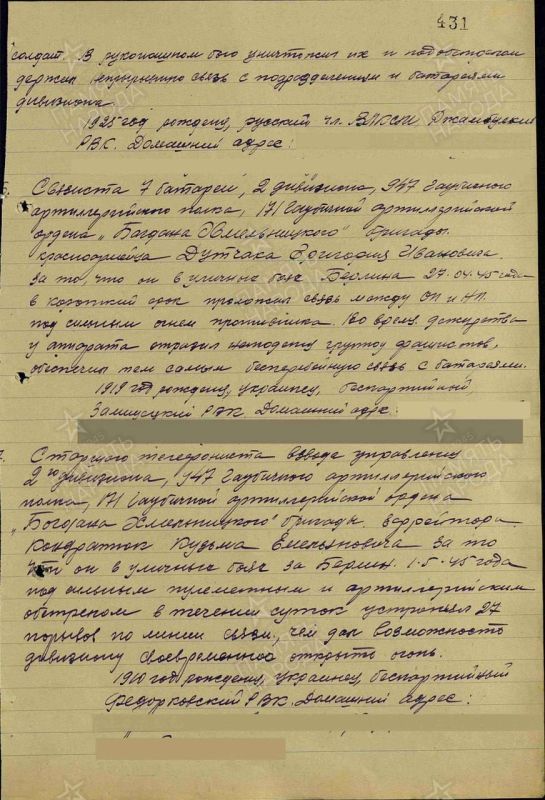 431
солдат. В рукопашном бою уничтожил их и
держал непрерывно связь с подразделениями и батареями
дивизиона.
1925 год рождения, русский чл. ВЛКСМ, Джамбулский
РВК. Домашний адрес:
Связиста 7 батареи, 2 дивизиона, 947 Гаубичного
артиллерийского полка, 171 Гаубичной артиллерийской
ордена „Богдана Хмельницкого" бригады
красноармейца Дутчака Григория Ивановича
За то, что он в уличных боях Берлина 27.04.45 года
в короткий срок проложил связь между ОП и НП.
под сильным огнем противника. Во время дежурства
у аппарата отразил группу фашистов,
обеспечил тем самым бесперебойную связь с батареями.
1919 год рождения, украинец, беспартийный
РВК. Домашний адрес:
Старшего телефониста взвода управления
2го дивизиона, 947 Гаубичного артиллерийского
полка, 171 Гаубичной артиллерийской ордена
„Богдана Хмельницкого" бригады ефрейтора
Кондратюк Кузьма Емельяновича За то
что он в уличных боях за Берлин 1.5.45 года
под сильным пулеметным и артиллерийским
обстрелом в течении суток устранил 27
порывов по линии связи, чем дал возможность
дивизиону своевременно открыть огонь.
1910 год рождения, украинец, беспартийный
Федорковский РВК. Домашний адрес:
ПАМЯТЬ НАРОДА